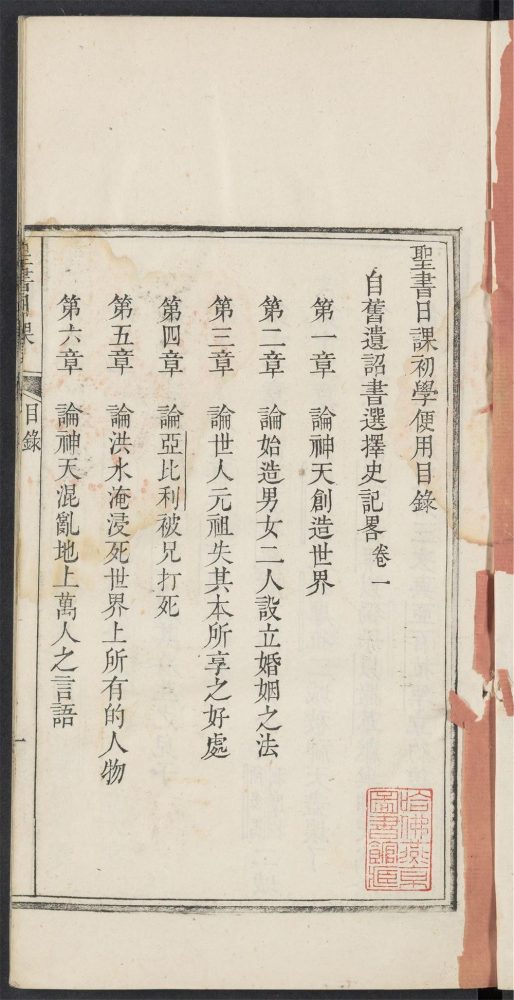 聖書日課初學便用目錄
自舊遺詔書選擇史記畧卷一
第一章 論神天創造世界
第二章 論始造男女二人設立婚姻之法
第三章 論世人元祖失其本所享之好處
第四章 論亞比利被兄打死
第五章 論洪水淹浸死世界上所有的人物
第六章 論神天混亂地上萬人之言語
聖書日課 目錄 一
哈佛燕京圖書館